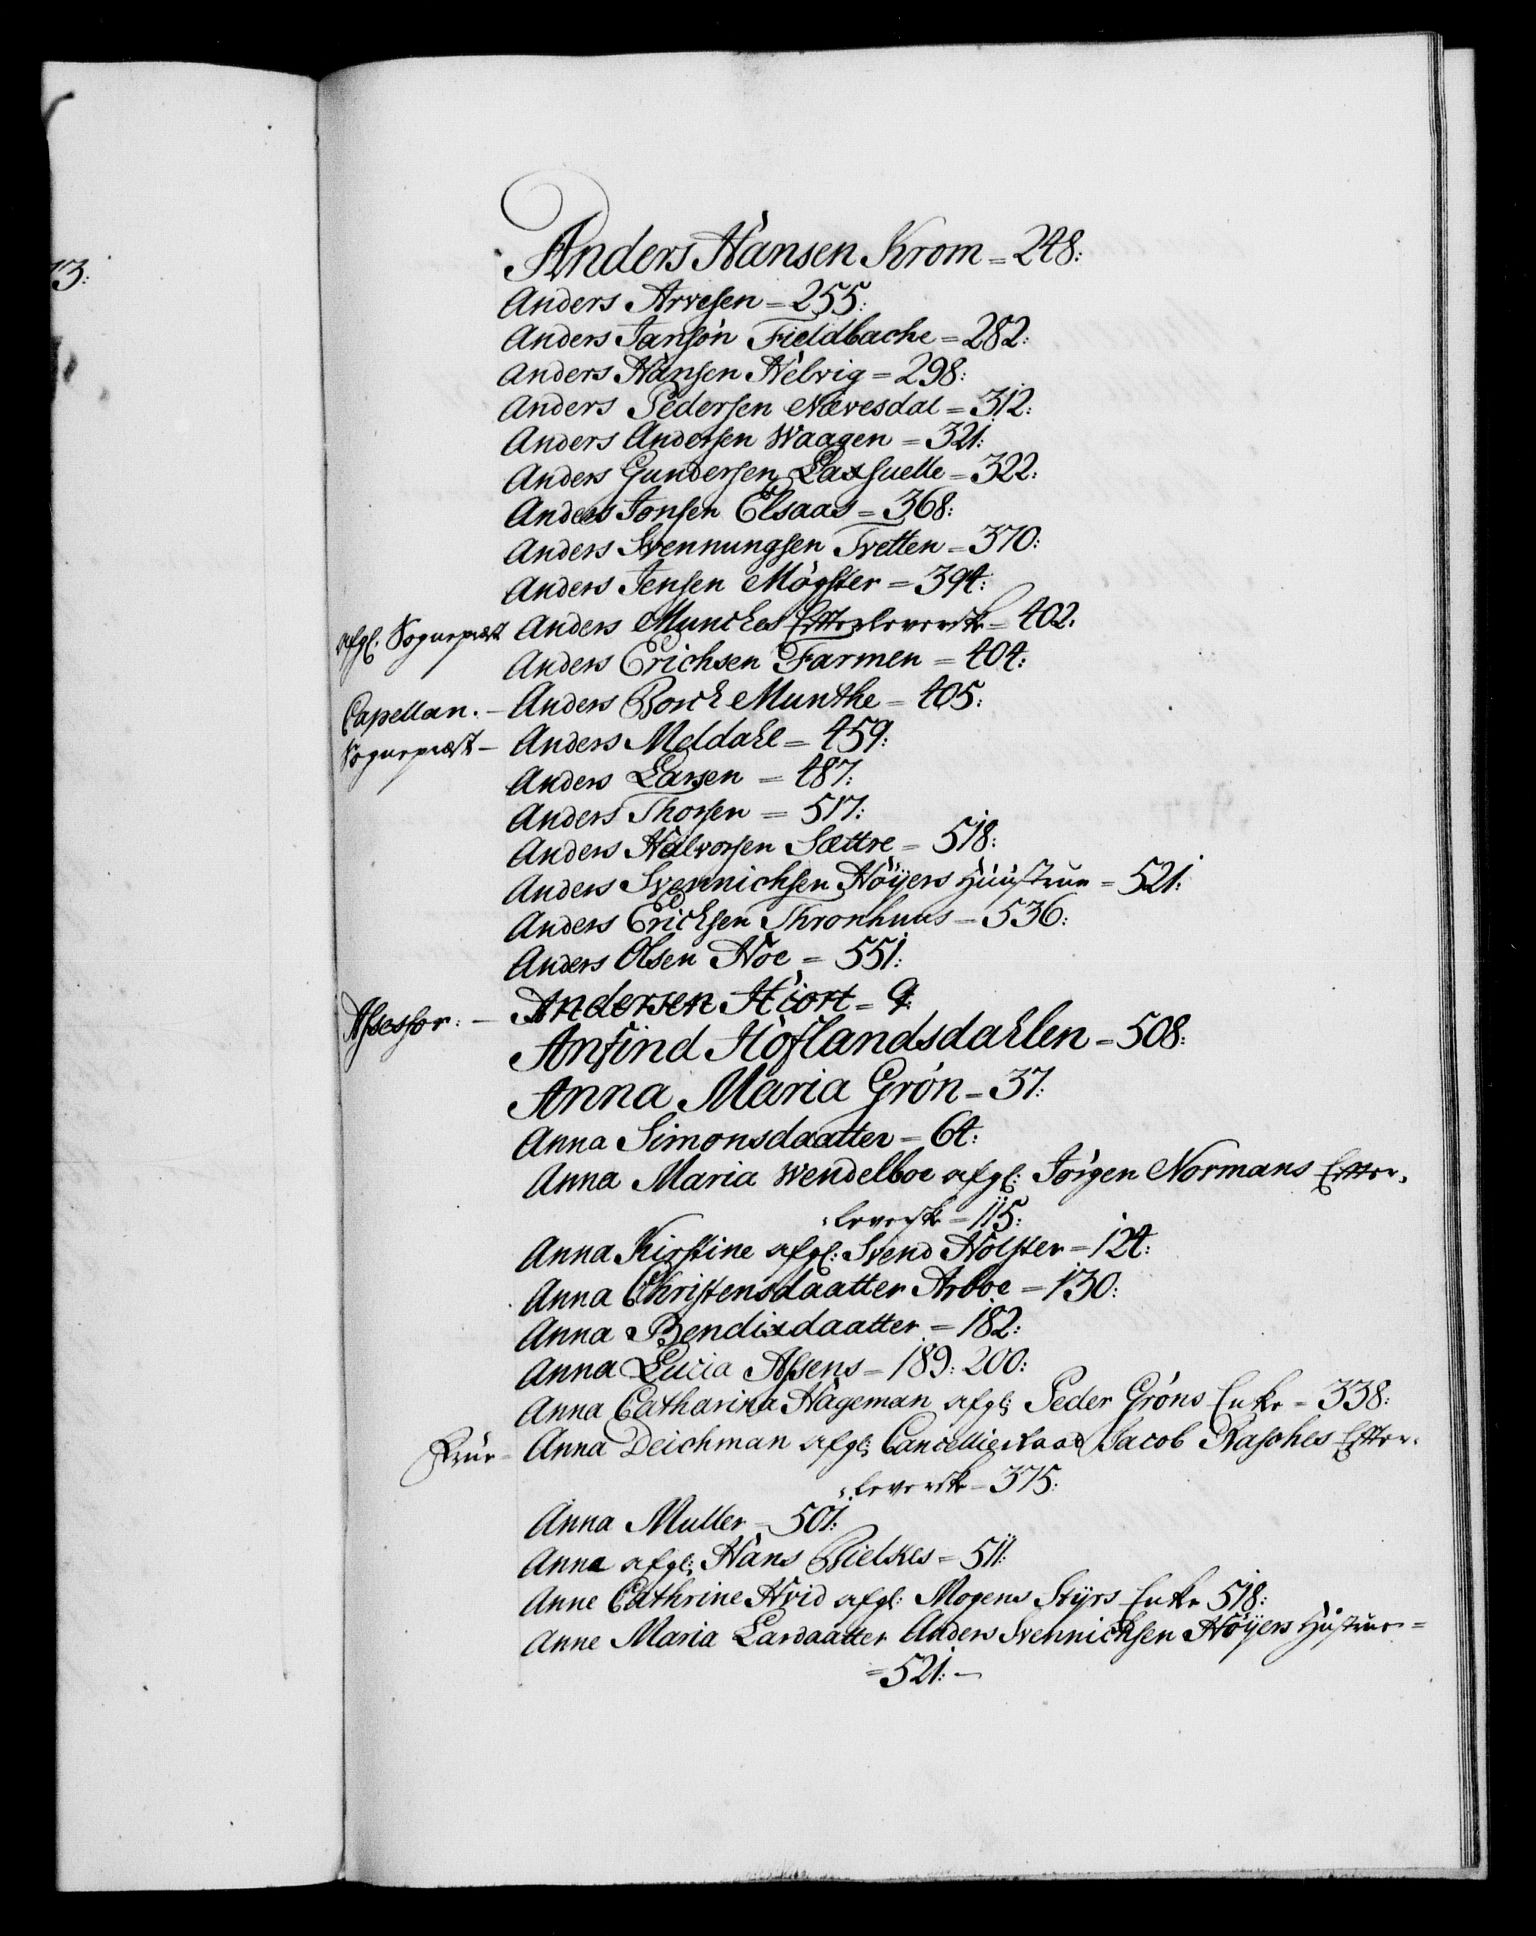 13:
Anders Hansen Krom = 248:
Anders Arvesen = 255:
Anders Jansøn Fieldbache = 282:
Anders Hansen Helvig = 298:
Anders Pedersen Nævesdal = 312:
Anders Andersen Waagen = 321:
Anders Gundersen Laxsuelle = 322:
Anders Jonsen Elsaas = 368:
Anders Svennungsen Tvetten = 370:
Anders Jensen Mögster = 394:
afgl. Sognepræst Anders Munches Efterleverske = 402.
Anders Erichsen Farmen = 404:
Capellan. – Anders Borch Munthe = 405:
Sognepræst – Anders Meldahl = 459:
Anders Larsen = 487:
Anders Thorsen = 517:
Anders Halvorsen Sættre = 518:
Anders Svennichsen Höyers Huustrue = 521:
Anders Erichsen Thronhuus = 536:
Anders Olsen Hoe = 551:
Assessor: – Andersen Hiort = 9:
Anfind Höflandsdahlen = 508:
Anna Maria Grøn = 37:
Anna Simonsdaatter = 64:
Anna Maria Wendelboe afgl: Jörgen Normans Efter-
leverske = 115:
Anna Kirstine afgl: Svend Holster = 124:
Anna Christensdaatter Arboe = 130:
Anna Bendixdaatter = 182:
Anna Lucia Assens = 189: 200:
Anna Catharina Hageman afgl: Peder Gröns Enke = 338:
Frue = Anna Deichman afgl: Cancellieraad Jacob Rasches Efter-
leverske = 375:
Anna Muller = 501:
Anna afgl: Hans Bielkes = 511:
Anne Cathrine Hvid afgl: Mogens Styrs Enke 518:
Anne Maria Lardaatter Anders Svennichsen Höyers Hustrue =
= 521: –